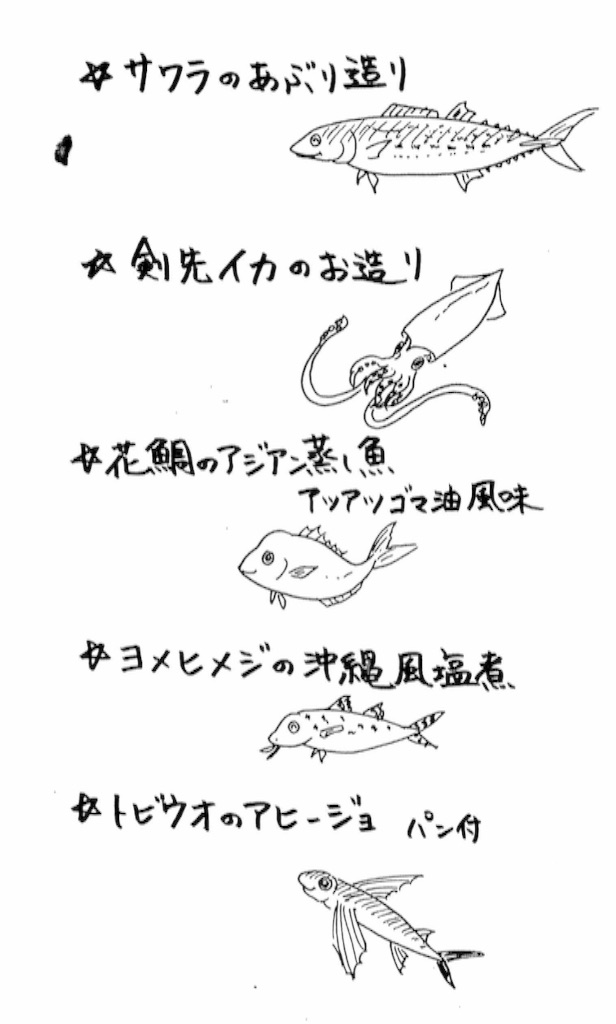 ☆サワラのあぶり造り
☆剣先イカのお造り
☆花鯛のアジアン蒸し魚
アツアツゴマ油風味
☆ヨメヒメジの沖縄風塩煮
☆トビウオのアヒージョ パン付